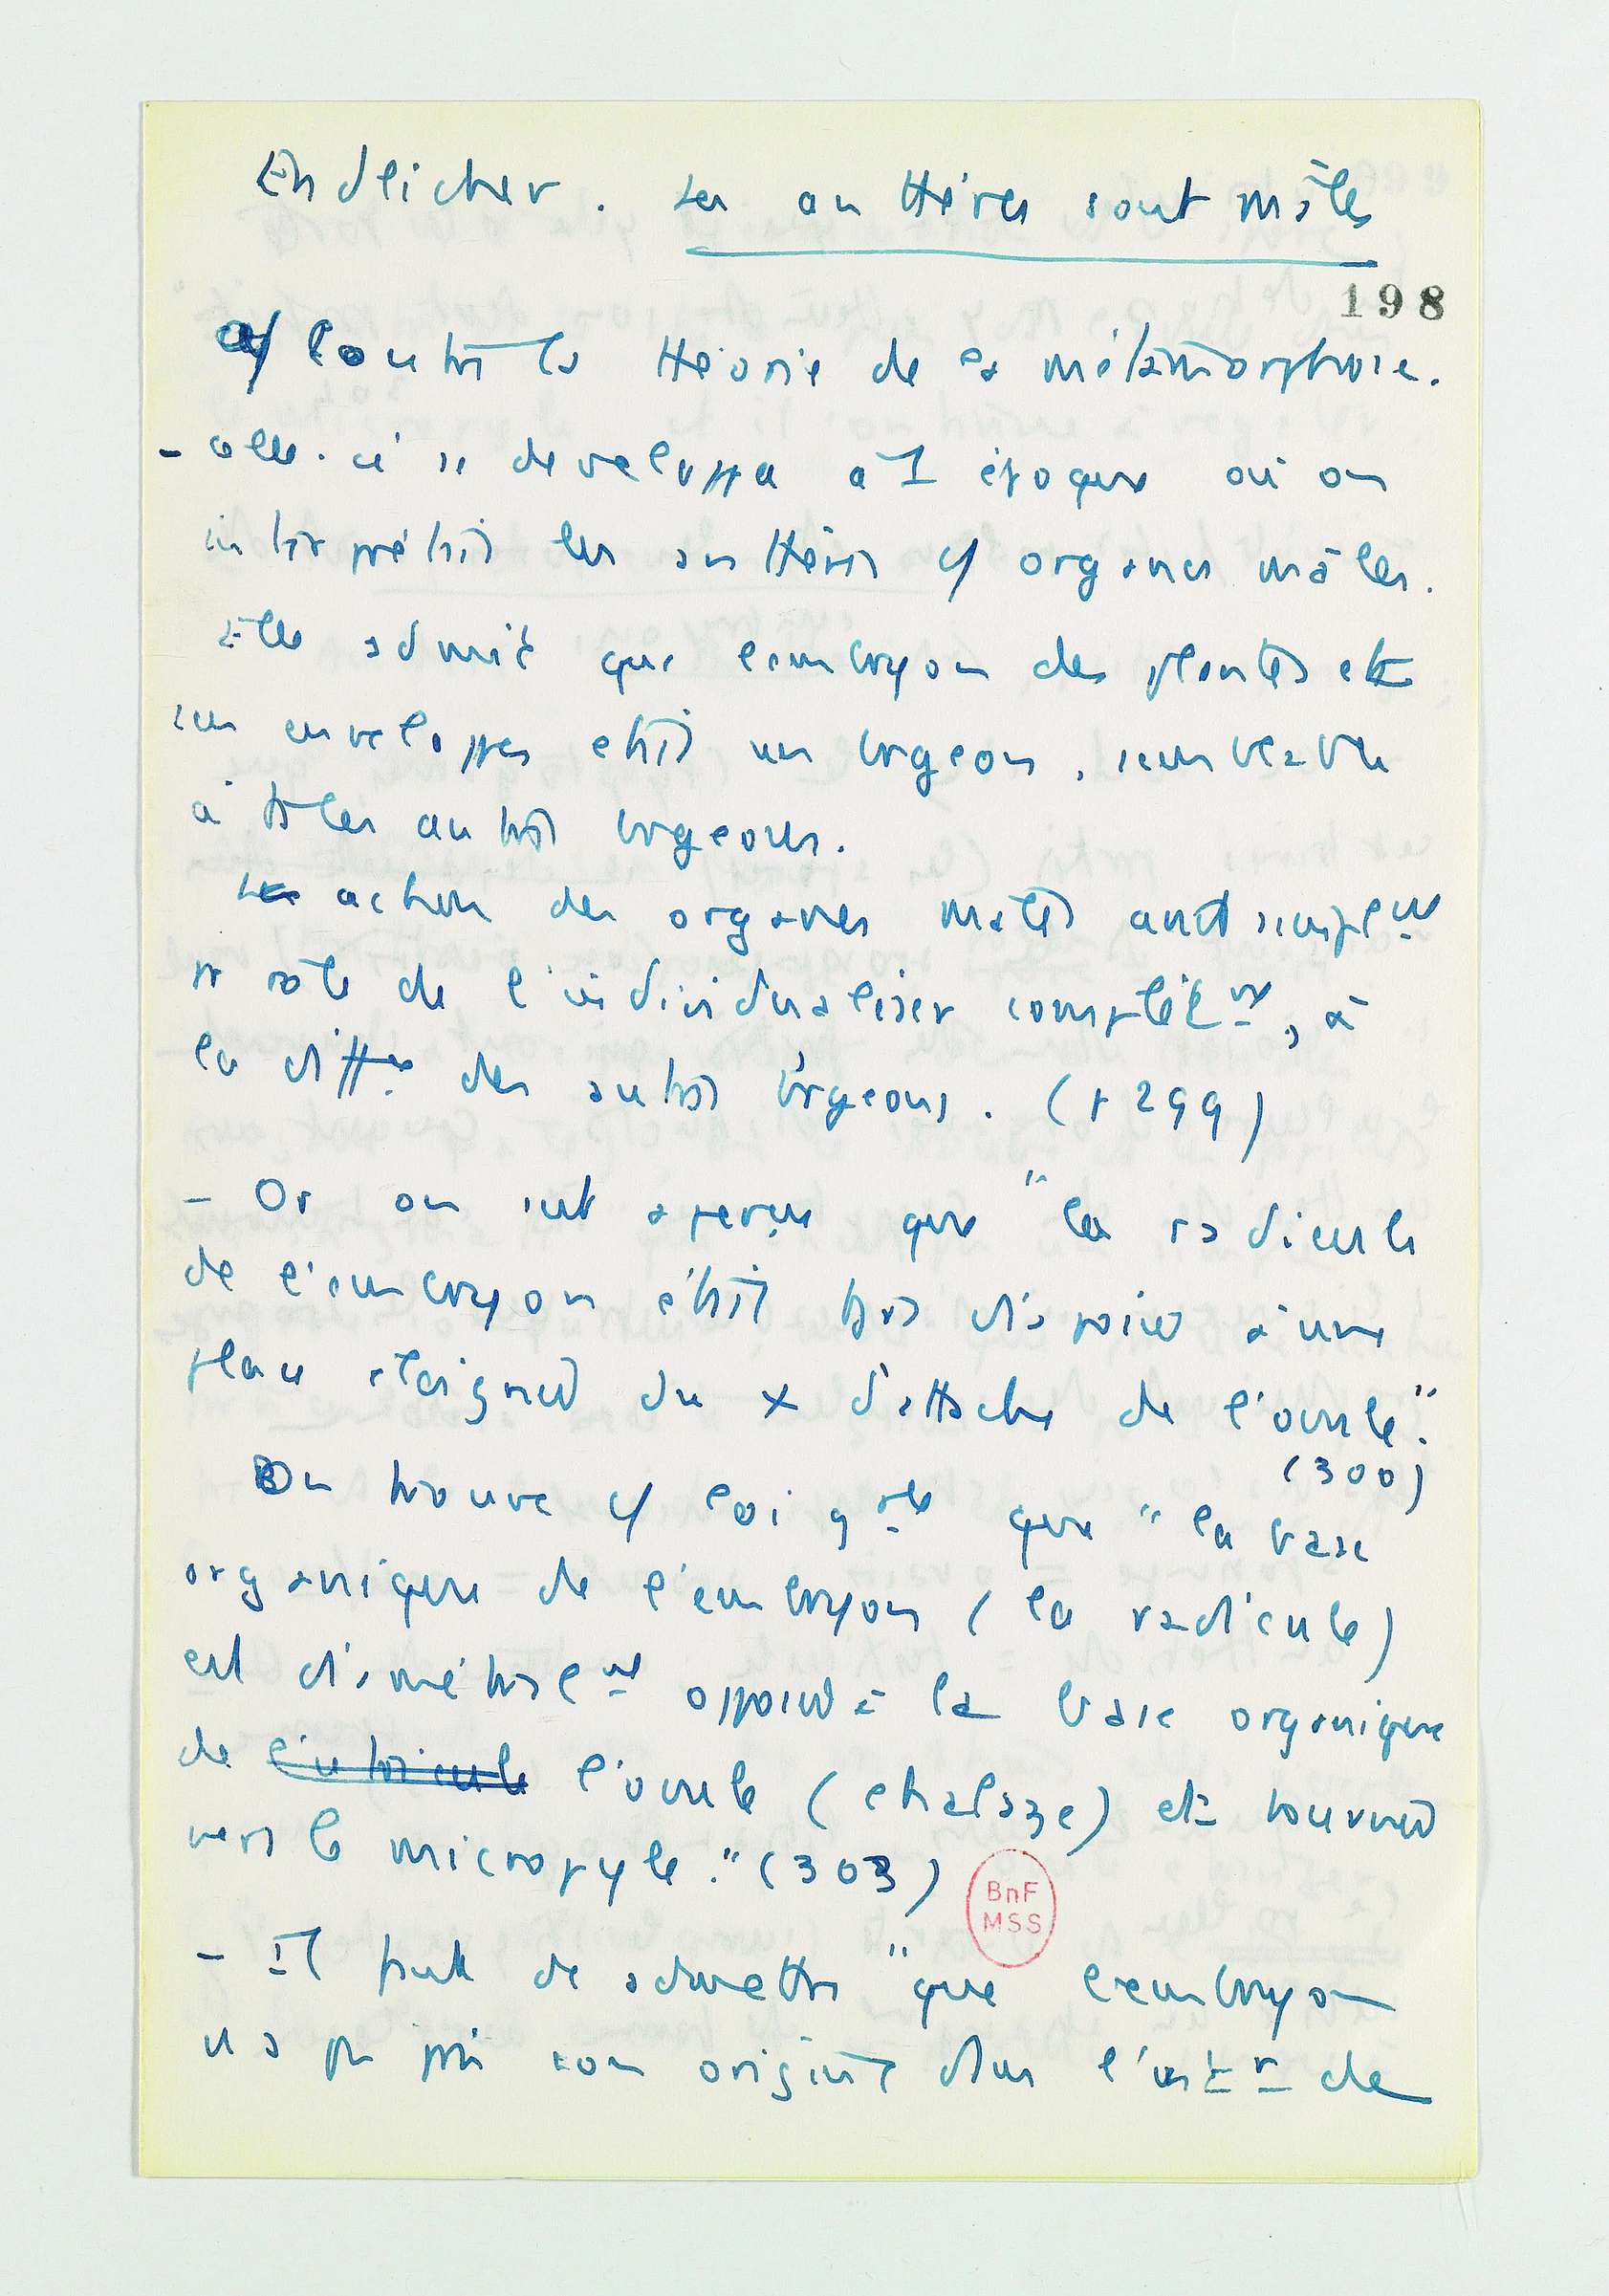 Endlicher. Les anthères sont mâles
198
a/ Contre la théorie de la métamorphose.
- celle-ci se développa à 1 époque où on
interprétait les anthères c/ organes mâles.
Elle admit que l'embryon des plantes et
ses enveloppes était un brgeon, semblable
à ts les autres brgeons.
action des organes mâles avait simplemt
pr rôle de l'individualiser complètemt, à
la diffce des autres brgeons. (p 299)
- Or on s'est aperçu que "la radicule
de l'embryon était tjrs disposée à une
place éloignée du x d'attache de l'ovule."
(300)
On trouve c/ loi gale que "la base
organique de l'embryon (la radicule)
est diamétralemt opposée à la base organique
de l'utricule l'ovule (chalaze) et tournée
vers le micropyle." (303)
- Il faut dc admettre "que l'embryon
n'a pas pris son origine dans l'intr de